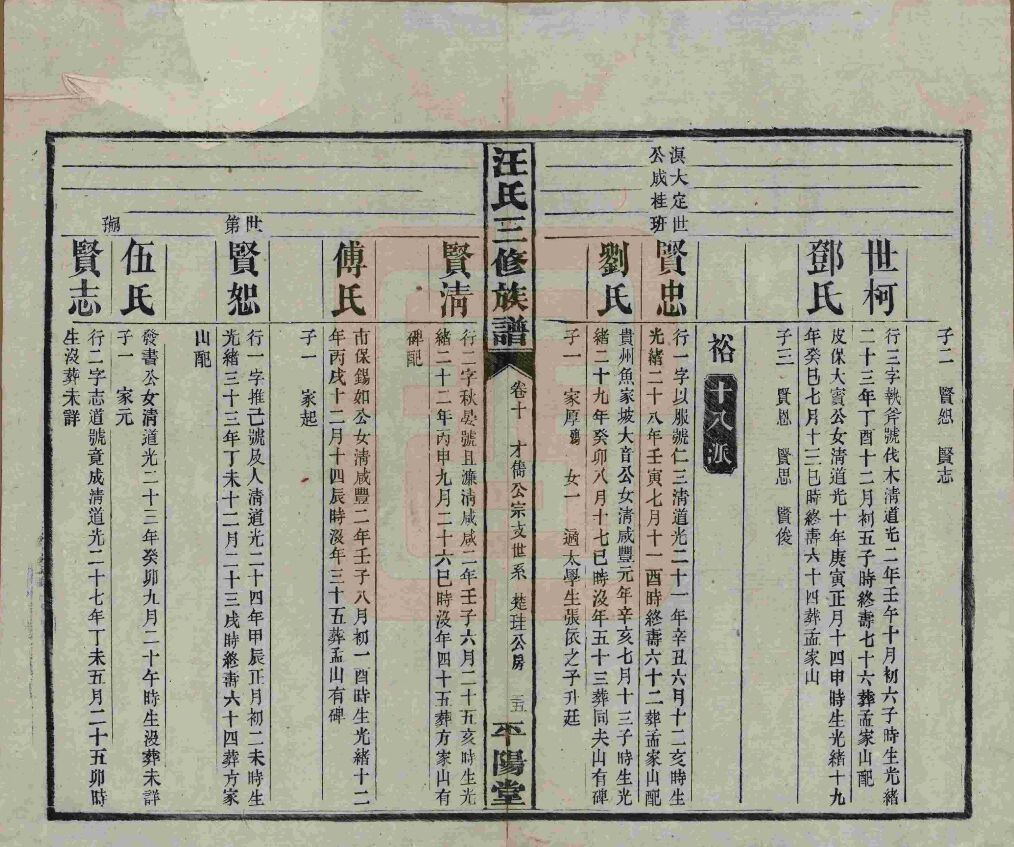 子二　賢恕　賢志
世柯
行三字執斧號伐木清道光二年壬午十月初六子時生光緒
二十三年丁酉十二月初五子時終壽七十六葬孟家山配
鄧氏
皮保大賓公女清道光十年庚寅正月十四申時生光緒十九
年癸巳七月十三巳時終壽六十四葬孟家山
子三　賢恩　賢忠　賢俊
裕
十八派
淇大定世
公成桂班
賢忠
行一字以服號仁三清道光二十一年辛丑六月十二亥時生
光緒二十八年壬寅七月十一酉時終壽六十二葬孟家山配
劉氏
貴州魚家坡大音公女清咸豐元年辛亥七月十三子時生光
緒二十九年癸卯八月十七巳時沒年五十三葬同夫山有碑
子一　家厚　女一　適太學生張依之子升廷
汪氏三修族譜
卷十　才儒公宗支世系　楚珪公房
平陽堂
賢清
行二字秋晏號且濂清咸咸二年壬子六月二十五亥時生光
緒二十二年丙申九月二十六巳時沒年四十五葬方家山有
碑配
傅氏
市保錫如公女清咸豐二年壬子八月初一酉時生光緒十二
年丙戌十二月十四辰時沒年三十五葬孟山有碑
子一　家起
世第
賢恕
行一字推己號及人清道光二十四年甲辰正月初二未時生
光緒三十三年丁未十二月二十三戌時終壽六十四葬方家
山配
伍氏
發書公女清道光二十三年癸卯九月二十午時生沒葬未詳
子一　家元
賢志
行二字志道號竟成清道光二十七年丁未五月二十五卯時
生沒葬未詳